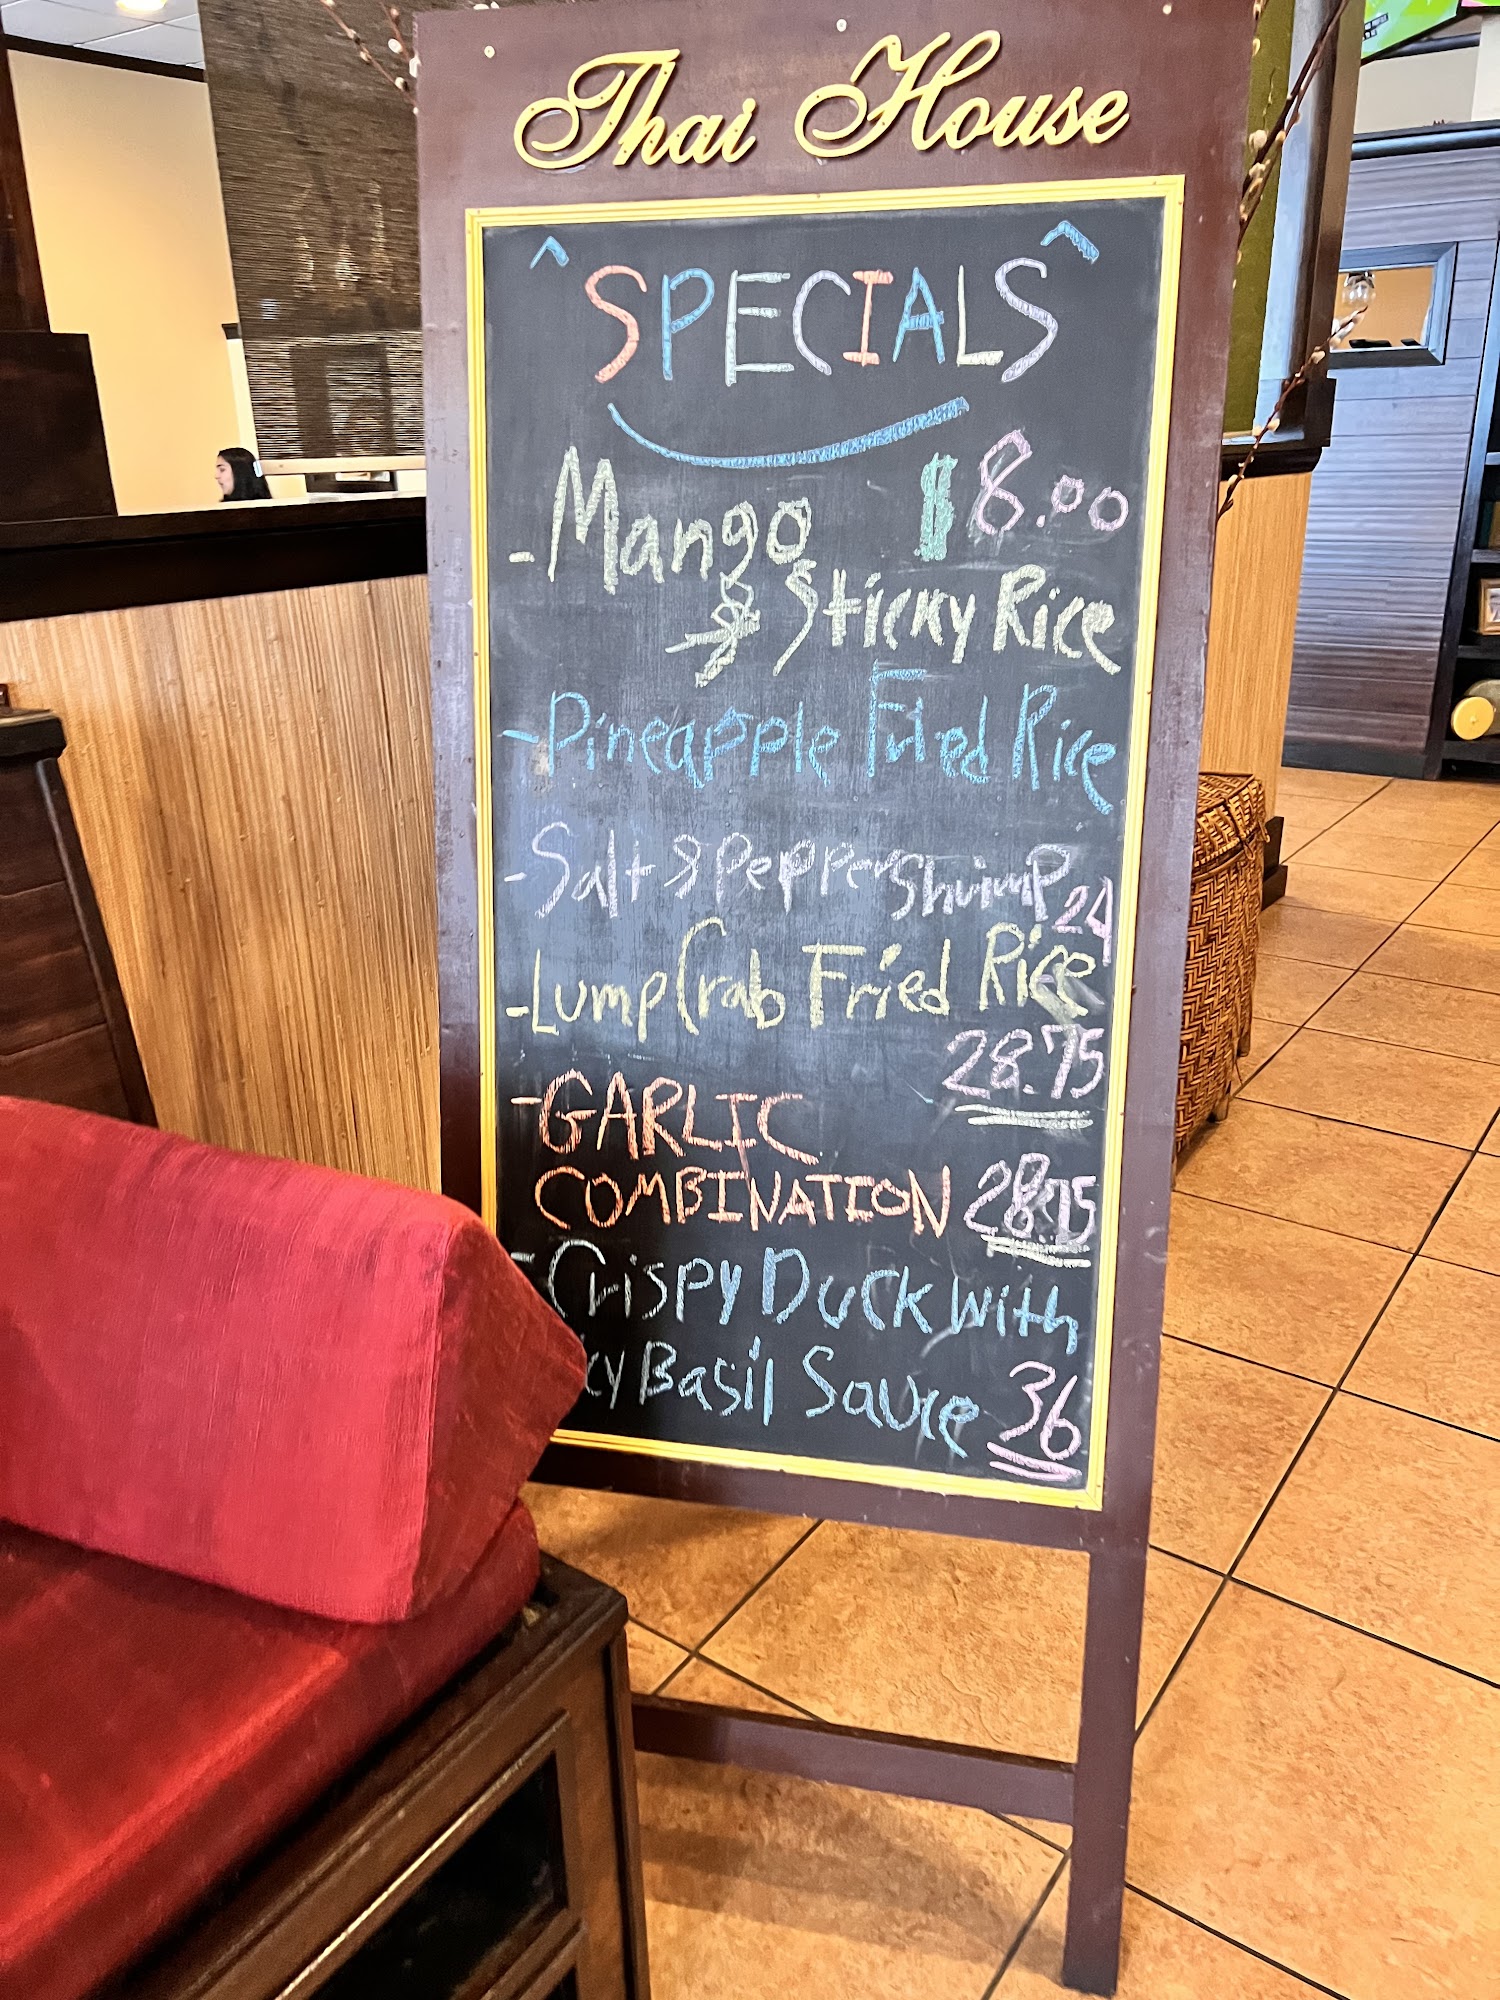 Thai House
^ SPECIALS ^
- Mango $8.00
& Sticky Rice
- Pineapple Fried Rice
- Salt & Pepper Shrimp 24
- Lump Crab Fried Rice
28.75
- GARLIC
COMBINATION 28.75
- Crispy Duck with
cy Basil Sauce 36